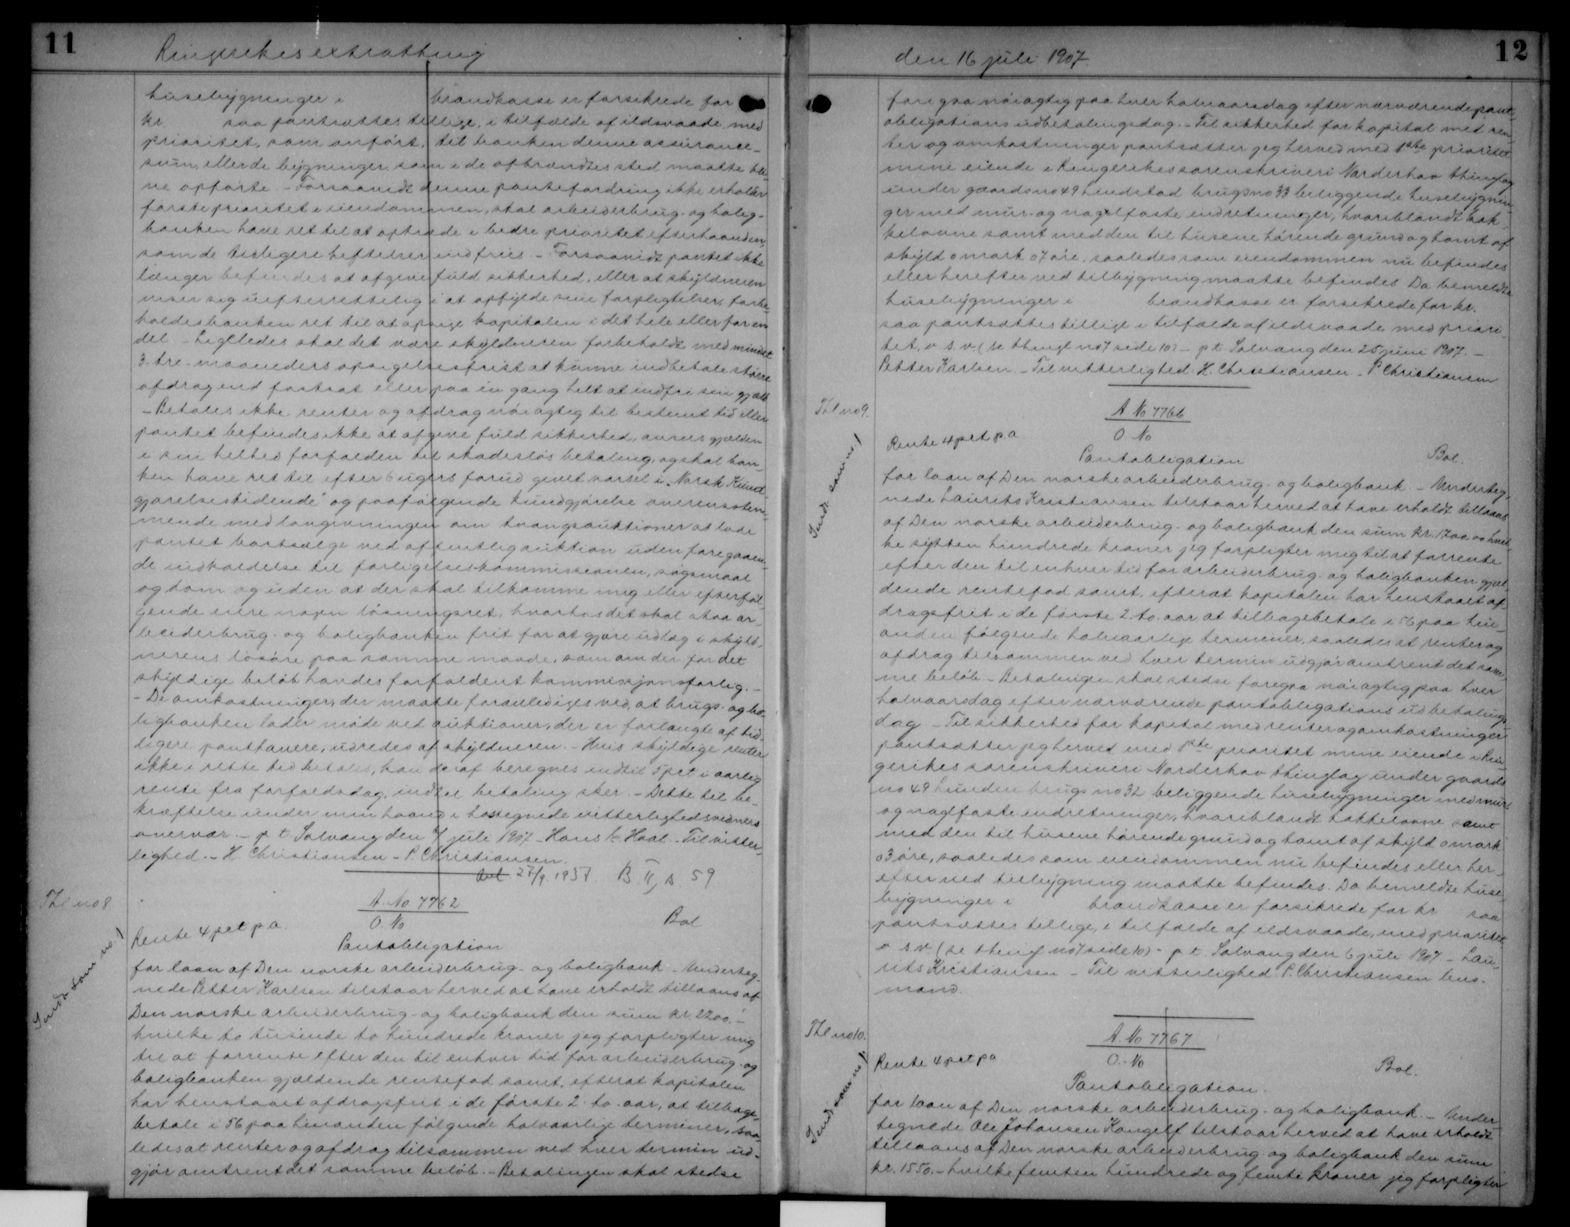 11
Ringerikes extratthing
husebygninger i brandkasse er forsikrede for
kr saa pantsættes tillige, i tilfælde af ildsvaade, med
prioritet, som anført, til banken denne assurance-
sum, eller de bygninger, som i de afbrændtes sted maatte bli-
ve opførte. - Forsaavidt denne pantefordring ikke erholder
første prioritet i eiendommen, skal arbeiderbrug- og bolig-
banken have ret til at oprykke i bedre prioritet efterhaanden,
som de tidligere heftelser indfries. - Forsaavidt pantet ikke
længer befindes at afgive fuld sikkerhed, eller at skyldneren
viser sig uefterrettelig i at opfylde sine forpligtelser, forbe-
holdes banken ret til at opsige kapitalen i det hele eller for en
del - Ligeledes skal det være skyldneren forbeholdt med mindst
3 - tre - maaneders opsigelsesfrist at kunne indbetale større
afdrag end fastsat eller paa en gang helt at indfri sin gjæld
- Betales ikke renter og afdrag nøiagtig til bestemt tid eller
pantet befindes ikke at afgive fuld sikkerhed, ansees gjælden
i sin helhed forfalden til skadesløs betaling, og skal ban-
ken have ret til efter 6 ugers forud givet varsel i „Norsk Kund-
gjørelsestidende" og paafølgende kundgjørelse overensstem-
mende med lovgivningen om tvangsauktioner at lade
pantet bortsælge ved offentlig auktion uden foregaaen-
de indkaldelse til forligelseskommissionen, søgsmaal
og dom og uden at der skal tilkomme mig eller efterføl-
gende eiere nogen løsningsret, hvorhos det skal staa ar-
beiderbrug- og boligbanken frit for at gjøre udlæg i skyld-
nerens løsøre paa samme maade, som om der for det
skyldige beløb havdes forfaldent kommissionsforlig. -
- De omkostninger, der maatte foranlediges ved, at brugs- og bo-
ligbanken lader møde ved auktioner, der er forlangte af tid-
ligere panthavere, udredes af skyldneren. - Hvis skyldige renter
ikke i rette tid betales, kan deraf beregnes indtil 5 pct i aarlig
rente fra forfaldsdag, indtil betaling sker. - Dette til be-
kræftelse under min haand i hosegnede vitterlighedsvidners
overvær. - p t Solvang den 6/7 juli 1907 - Hans K Hval - Til vitter-
lighed. - H Christiansen - P. Christiansen.
Avl 27/9 1937 B II, s 59
Thl no 8
A No 7762
O No
Rente 4 pct p a. Bol
Pantobligation
Indt som no 1
for laan af Den norske arbeiderbrug- og boligbank - Underteg-
nede Petter Karlsen tilstaar herved at have erholdt tillaans af
Den norske arbeiderbrug- og boligbank den sum kr. 2200.-
hvilke to tusinde to hundrede kroner jeg forpligter mig
til at forrente efter den til enhver tid for arbeiderbrug- og
boligbanken gjældende rentefod samt, efterat kapitalen
har henstaaet afdragsfrit i de første 2 - to - aar, at tilbage-
betale i 56 paa hinanden følgende halvaarlige terminer, saa-
ledes at renter og afdrag tilsammen ved hver termin ud-
gjør omtrent det samme beløb. - Betalingen skal stedse
den 16 juli 1907
12
foregaa nøiagtig paa hver halvaarsdag efter nærværende pant-
obligations udbetalingsdag. - Til sikkerhed for kapital med ren-
ter og omkostninger pantsætter jeg herved med 1ste prioritet
mine eiende i Ringerikes sorenskriveri Norderhov thinglag
under gaardsno 49 Lundstad brugsno 33 beliggende husebygnin-
ger med mur- og nagelfaste indretninger, hvoriblandt kak-
kelovne samt med den til husene hørende grund og tomt af
skyld 0 mark 07 øre, saaledes som eiendommen nu befindes
eller herefter ved tilbygning maatte befindes. Da bemeldte
husebygninger i brandkasse er forsikrede for kr.
saa pantsættes tillige i tilfælde af ildsvaade med priori-
tet, o. s. v. (se thingl no 7 side 10) - p t Solvang den 25 juni 1907. -
Petter Karlsen - Til vitterlighed: H. Christiansen - P. Christiansen
Thl no 9.
A No 7766
O No
Rente 4 pct p a
Pantobligation Bol.
Indt som no 1
for laan af Den norske arbeiderbrug- og boligbank. - Underteg-
nede Laurits Kristiansen tilstaar herved at have erholdt tillaans
af Den norske arbeiderbrug- og boligbank den sum kr. 1700 00 hvil-
ke sytten hundrede kroner jeg forpligter meg til at forrente
efter den til enhver tid for arbeiderbrug- og boligbanken gjæl-
dende rentefod samt, efterat kapitalen har henstaaet af-
dragsfrit i de første 2 - to - aar at tilbagebetale i 56 paa hin-
anden følgende halvaarlige terminer, saaledes at renter og
afdrag tilsammen ved hver termin udgjør omtrent det sam-
me beløb. - Betalingen skal stedse foregaa nøiagtig paa hver
halvaarsdag efter nærværende pantobligations udbetalings-
dag. - Til sikkerhed for kapital med renter og omkostninger
pantsætter jeg herved med 1ste prioritet mine eiende i Rin-
gerikes sorenskriveri Norderhov thinglag under gaards-
no 49 Lunden brugsno 32 beliggende husebygninger med mur-
og nagelfaste indretninger, hvoriblandt kakkelovne samt
med den til husene hørende grund og tomt af skyld 0 mark
03 øre, saaledes som eiendommen nu befindes eller her-
efter ved tilbygning maatte befindes. Da bemeldte huse-
bygninger i brandkasse er forsikrede for kr saa
pantsættes tillige, i tilfælde af ildsvaade, med prioritet
o. s. v. (se thingl no 7 side 10) - p t. Solvang den 6 juli 1907 - Lau-
rits Kristiansen - Til vitterlighed P. Christiansen lens-
mand.
Thl no 10.
A. No 7767
O. No
Rente 4 pct pa Bol.
Pantobligation.
Indt som no 1
for laan af Den norske arbeiderbrug- og boligbank. - Under-
tegnede Ole Johansen Kongelf tilstaar herved at have erholdt
tillaans af Den norske arbeiderbrug- og boligbank den sum
kr. 1550.- hvilke femten hundrede og femti kroner jeg forpligter